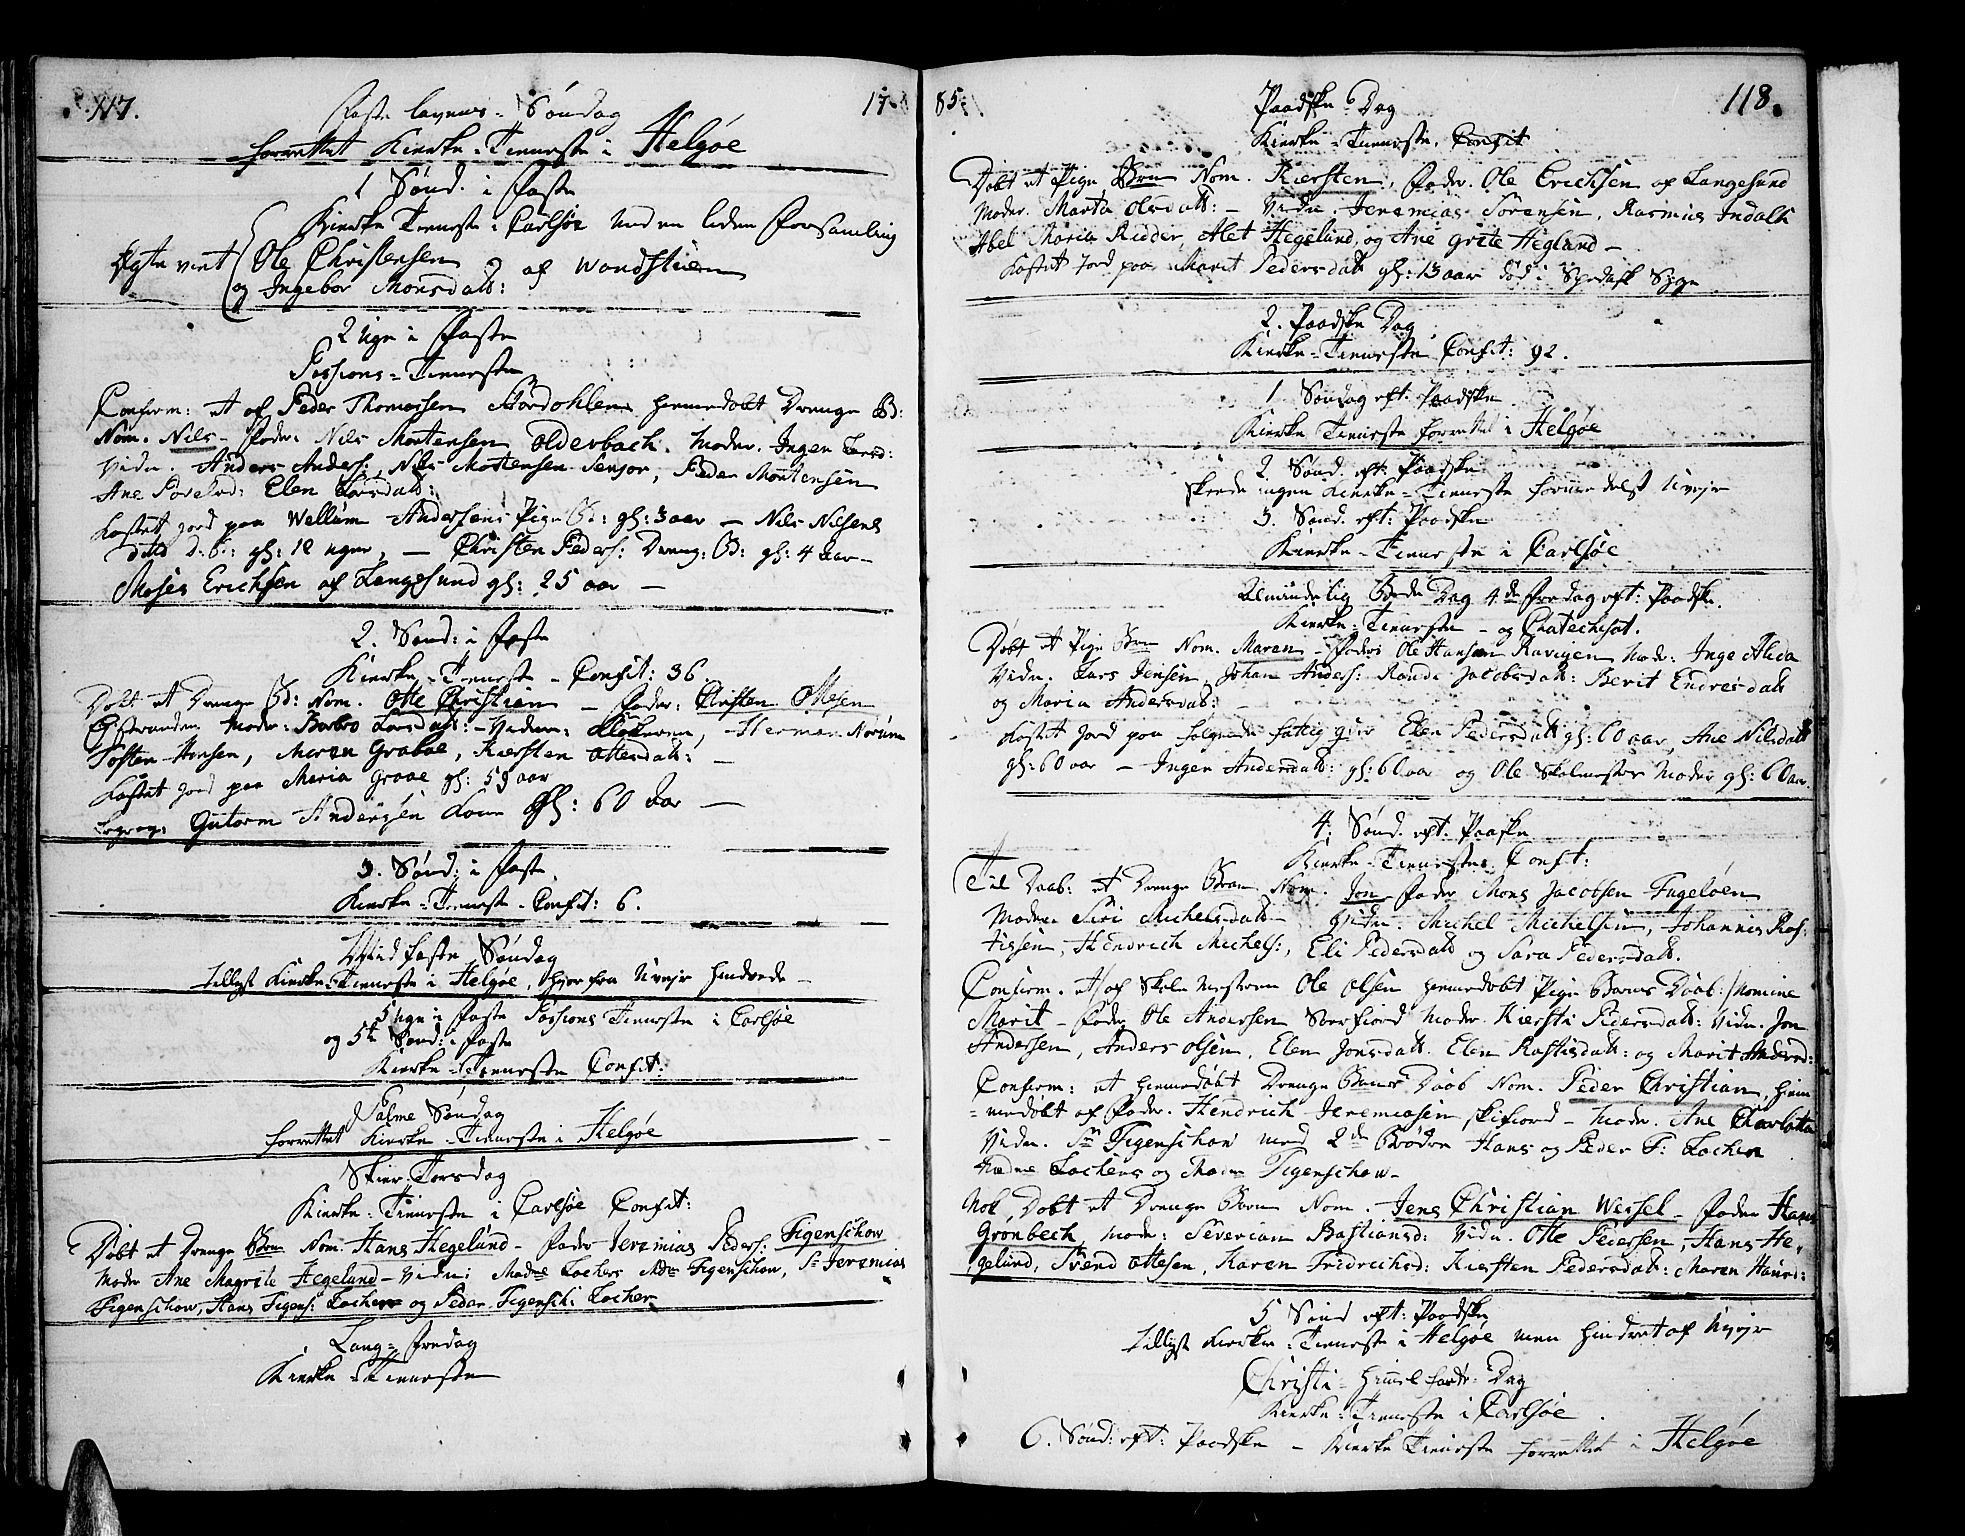 117. 17
Faste lavens Søndag
forrettet Kierke-Tieneste i Helgøe
1 Sønd. i Faste
Kierke Tieneste i Carlsøe under en liden Forsamling
Ægte viet Ole Christensen
og Ingebor Monsdatt: af Wandstuen
2 Uge i Faste
Passions-Tieneste
Confirm: et af Peder Thomassen Skordahlen hiemedøbt Drenge B:
Nom. Nils - Fader Nils Mortensen Olderbach. Moder. Inger Larsd:
Vidn. Anders Anders:, Nils Mortensen Senior, Peder Mortensen
Ane Povelsd: Elen Larsdatt:
Kastet Jord paa Wellum Andersens Pige B: gl: 3 aar - Nils Nilsens
døde D: B: gl: 12 uger, - Christen Peders: Dreng: B: gl: 4 Aar -
Moses Erichsen af Langesund gl: 25 aar -
2. Sønd: i Faste
Kierke-Tieneste - Confit: 36.
Døbt et Drenge B: Nom. Otte Christian - Fader: Christen Ottesen
Moder: Barbro Larsdatt: - Vidn: Klokeren, Herman Norum
Tosten Hansen, Maren Graboe, Kiersten Ottersdatt: -
Kastet Jord paa Maria Graae gl: 59 aar
Gutorm Andersen Gl: 60 Aar -
3. Sønd: i Faste
Kierke-Tieneste - Confit: 6.
Mid faste Søndag
Tillyst Kierke-Tieneste i Helgøe, hvorfra Uveyr hindrede -
5 Uge i Faste Passions Tieneste i Carlsøe
og 5te Sønd: i Faste
Kierke-Tieneste Confit:
Palme Søndag
forrettet Kierke-Tieneste i Helgøe
Skier Torsdag
Kierke-Tieneste i Carlsøe Confit:
Døbt et Drenge Barn Nom. Hans Hegelund - Fader Jeremias Peders: Figenschow
Moder Ane Magrete Hegelund - Vidn: Madme Lochers Mdme Figenschow, Sr Jeremias
Figenschow, Hans Figens: Locher og Peder Figensch: Locher
Lang-Fredag
Kierke-Tieneste
85. 118.
Paaske Dag
Kierke-Tieneste. Confit
Døbt et Pige Barn Nom. Kiersten, Fader. Ole Erichsen af Langesund
Moder. Marta Olsdatt: - Vidn. Jeremias Sørensen, Rasmus Indall
Abel Maria Ridder, Alet Hegelund, og Ane Grete Heglund -
Kastet Jord paa Marit Pedersdatt gl: 13 aar død i Spedalsk Syge
2. Paaske Dag
Kierke-Tieneste Confit: 92.
1. Søndag eft: Paaske
Kierke Tieneste forrettet i Helgøe
2. Sønd. eft: Paaske
skeede ingen Kierke-Tieneste formedelst Uveyr
3. Sønd. eft: Paaske
Kierke-Tieneste i Carlsøe
Almindelig Bede Dag 4de Fredag eft: Paaske.
Kierke-Tieneste - og Chatechisat.
Døbt et Pige Barn Nom. Maren - Fader Ole Hansen Ravigen Moder: Inge Alida
Vidn. Lars Jensen, Johan Anders: Rande Jacobsdatt: Berit Endresdatt
og Maria Andersdatt: -
Kastet Jord paa følgende fattige Elen Pedersdatt gl: 60 aar, Ane Nilsdatt
gl: 60 aar - Inger Andersdatt: gl: 60 aar og Ole Skolmester Moder gl: 60 aar.
4. Sønd. eft. Paaske
Kierke-Tieneste. Confit:
Til Daab: et Drenge Barn Nom. Jon Fader Mons Jacobsen Fugeløen
Moder Siri Michelsdatt - Vidn. Michel Michelsen, Johannis Ras:
tissen, Hendrich Michels:, Eli Pedersdatt og Sara Pedersdatt.
Confirm. et af Skole Mesteren Ole Olsen hiemedøbt Pige Barns Daab: Nomine
Marit - Fader Ole Andersen Sørfiord Moder. Kiersti Pedersdatt: Vidn. Jon
Andersen, Anders Olsen, Elen Jonsdatt. Elen Rastisdatt: og Marit Andersd:
Confirm: et hiemedøbt Drenge Barns Daab Nom. Peder Christian, hiem
medøbt af Fader. Hendrich Jeremiasen Skifiord - Moder. Ane Charlotta
Vidn. Sr Figenschow med 2de Brødre Hans og Peder F: Locher
Madme Lochers og Madme Figenschow -
Nok Døbt et Drenge Barn Nom. Jens Christian Wessel - Fader Hans
Grønbech, Moder: Severian Bastiansd: Vidn. Otte Pedersen, Hans He,
gelund, Svend Ottesen, Karen Fridrichsd: Kiersten Pedersdatt: Maren Hansd:
5 Sønd eft: Paaske
Tillyst Kierke-Tieneste i Helgøe men hindret af Uveyr
Christi Himmelfarts: Dag
Kierke-Tieneste i Carlsøe
6. Sønd: eft: Paaske - Kierke Tieneste forrettet i Helgøe